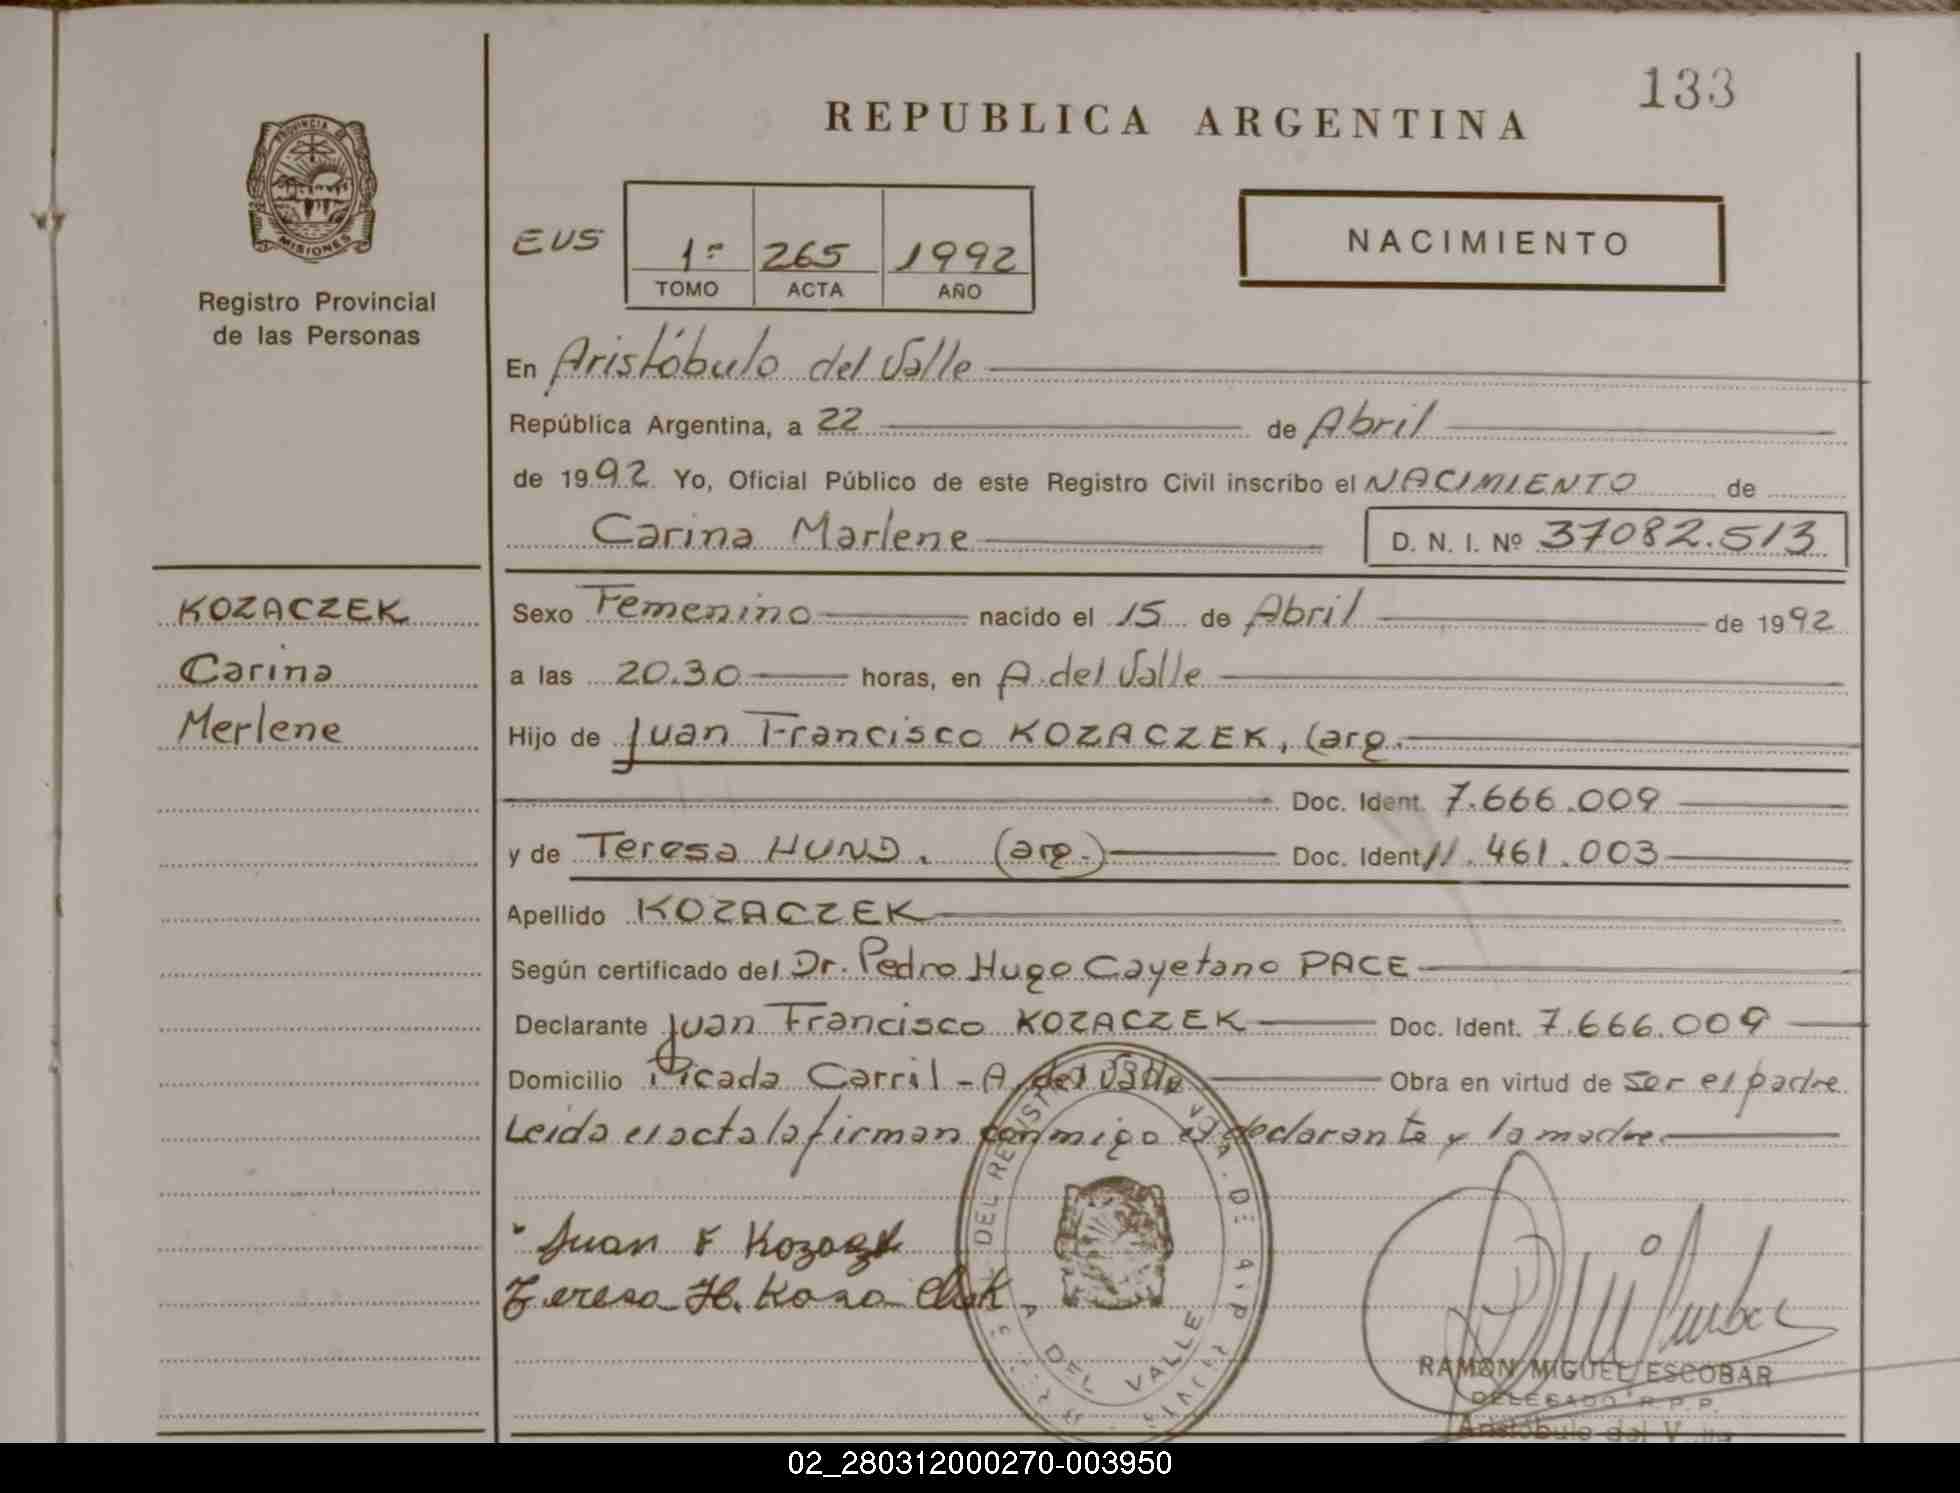 133
REPUBLICA ARGENTINA
PROVINCIA DE
MISIONES
Registro Provincial
de las Personas
EUS
1º 265 1992
TOMO ACTA AÑO
NACIMIENTO
En Aristóbulo del Valle
República Argentina, a 22 de Abril
de 1992 Yo, Oficial Público de este Registro Civil inscribo el NACIMIENTO de
Carina Marlene D. N. I. Nº 37082.513
KOZACZEK
Carina
Merlene
Sexo Femenino nacido el 15 de Abril de 1992
a las 20.30 horas, en A. del Valle
Hijo de Juan Francisco KOZACZEK, (arg.
Doc. Ident. 7.666.009
y de Teresa HUND. (arg.) Doc. Ident. 11.461.003
Apellido KOZACZEK
Según certificado del Dr. Pedro Hugo Cayetano PACE
Declarante Juan Francisco KOZACZEK Doc. Ident. 7.666.009
Domicilio Picada Carril - A. del Valle Obra en virtud de ser el padre
Leida el acta la firman conmigo el declarante y la madre
Juan F
Teresa H.
DEL VALLE
RAMON MIGUEL ESCOBAR
DELEGADO R.P.P.
Aristóbulo del
02_280312000270-003950